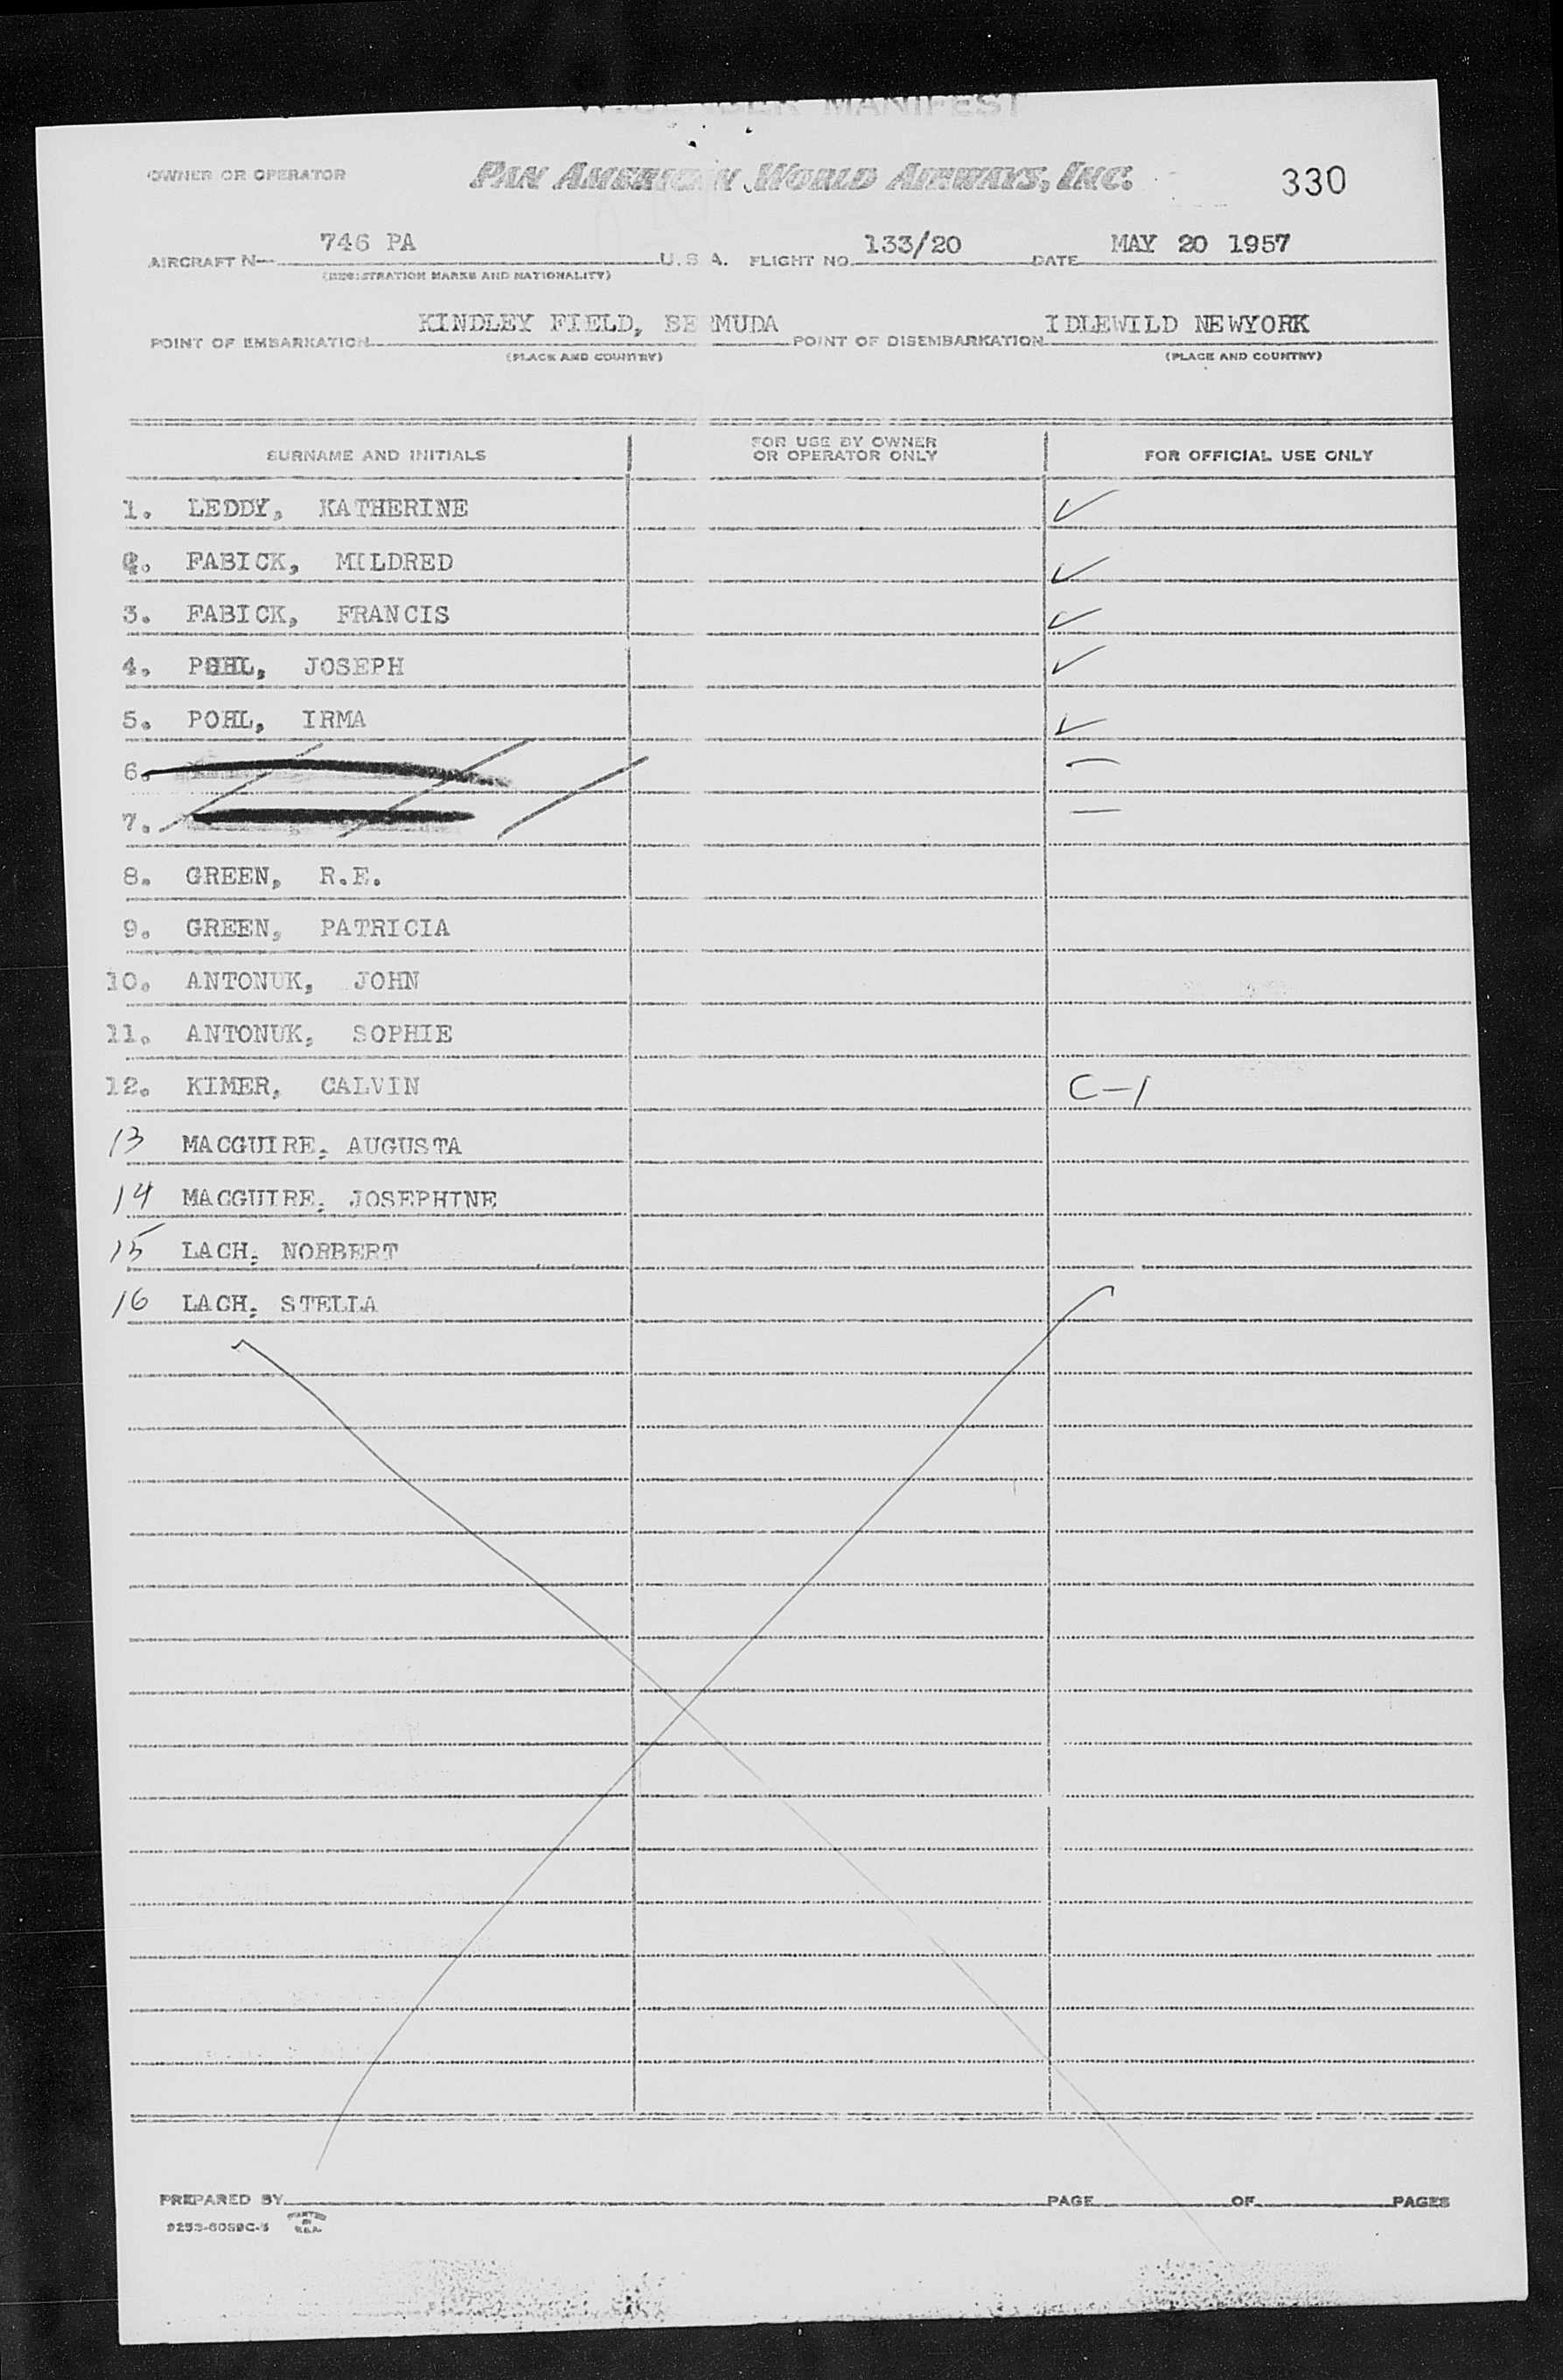 MANIFEST
OWNER OR OPERATOR PAN AMERICAN WORLD AIRWAYS, INC. 330
AIRCRAFT N 746 PA U.S.A. FLIGHT NO. 133/20 DATE MAY 20 1957
(REGISTRATION MARKS AND NATIONALITY)
POINT OF EMBARKATION KINDLEY FIELD, BERMUDA POINT OF DISEMBARKATION IDLEWILD NEWYORK
(PLACE AND COUNTRY) (PLACE AND COUNTRY)
SURNAME AND INITIALS FOR USE BY OWNER OR OPERATOR ONLY FOR OFFICIAL USE ONLY
1. LEDDY, KATHERINE ✓
2. FABICK, MILDRED ✓
3. FABICK, FRANCIS ✓
4. POHL, JOSEPH ✓
5. POHL, IRMA ✓
6. —
7. —
8. GREEN, R.E.
9. GREEN, PATRICIA
10. ANTONUK, JOHN
11. ANTONUK, SOPHIE
12. KIMER, CALVIN C-1
13 MACGUIRE, AUGUSTA
14 MACGUIRE, JOSEPHINE
15 LACH, NORBERT
16 LACH, STELLA
PREPARED BY PAGE OF PAGES
PRINTED IN U.S.A.